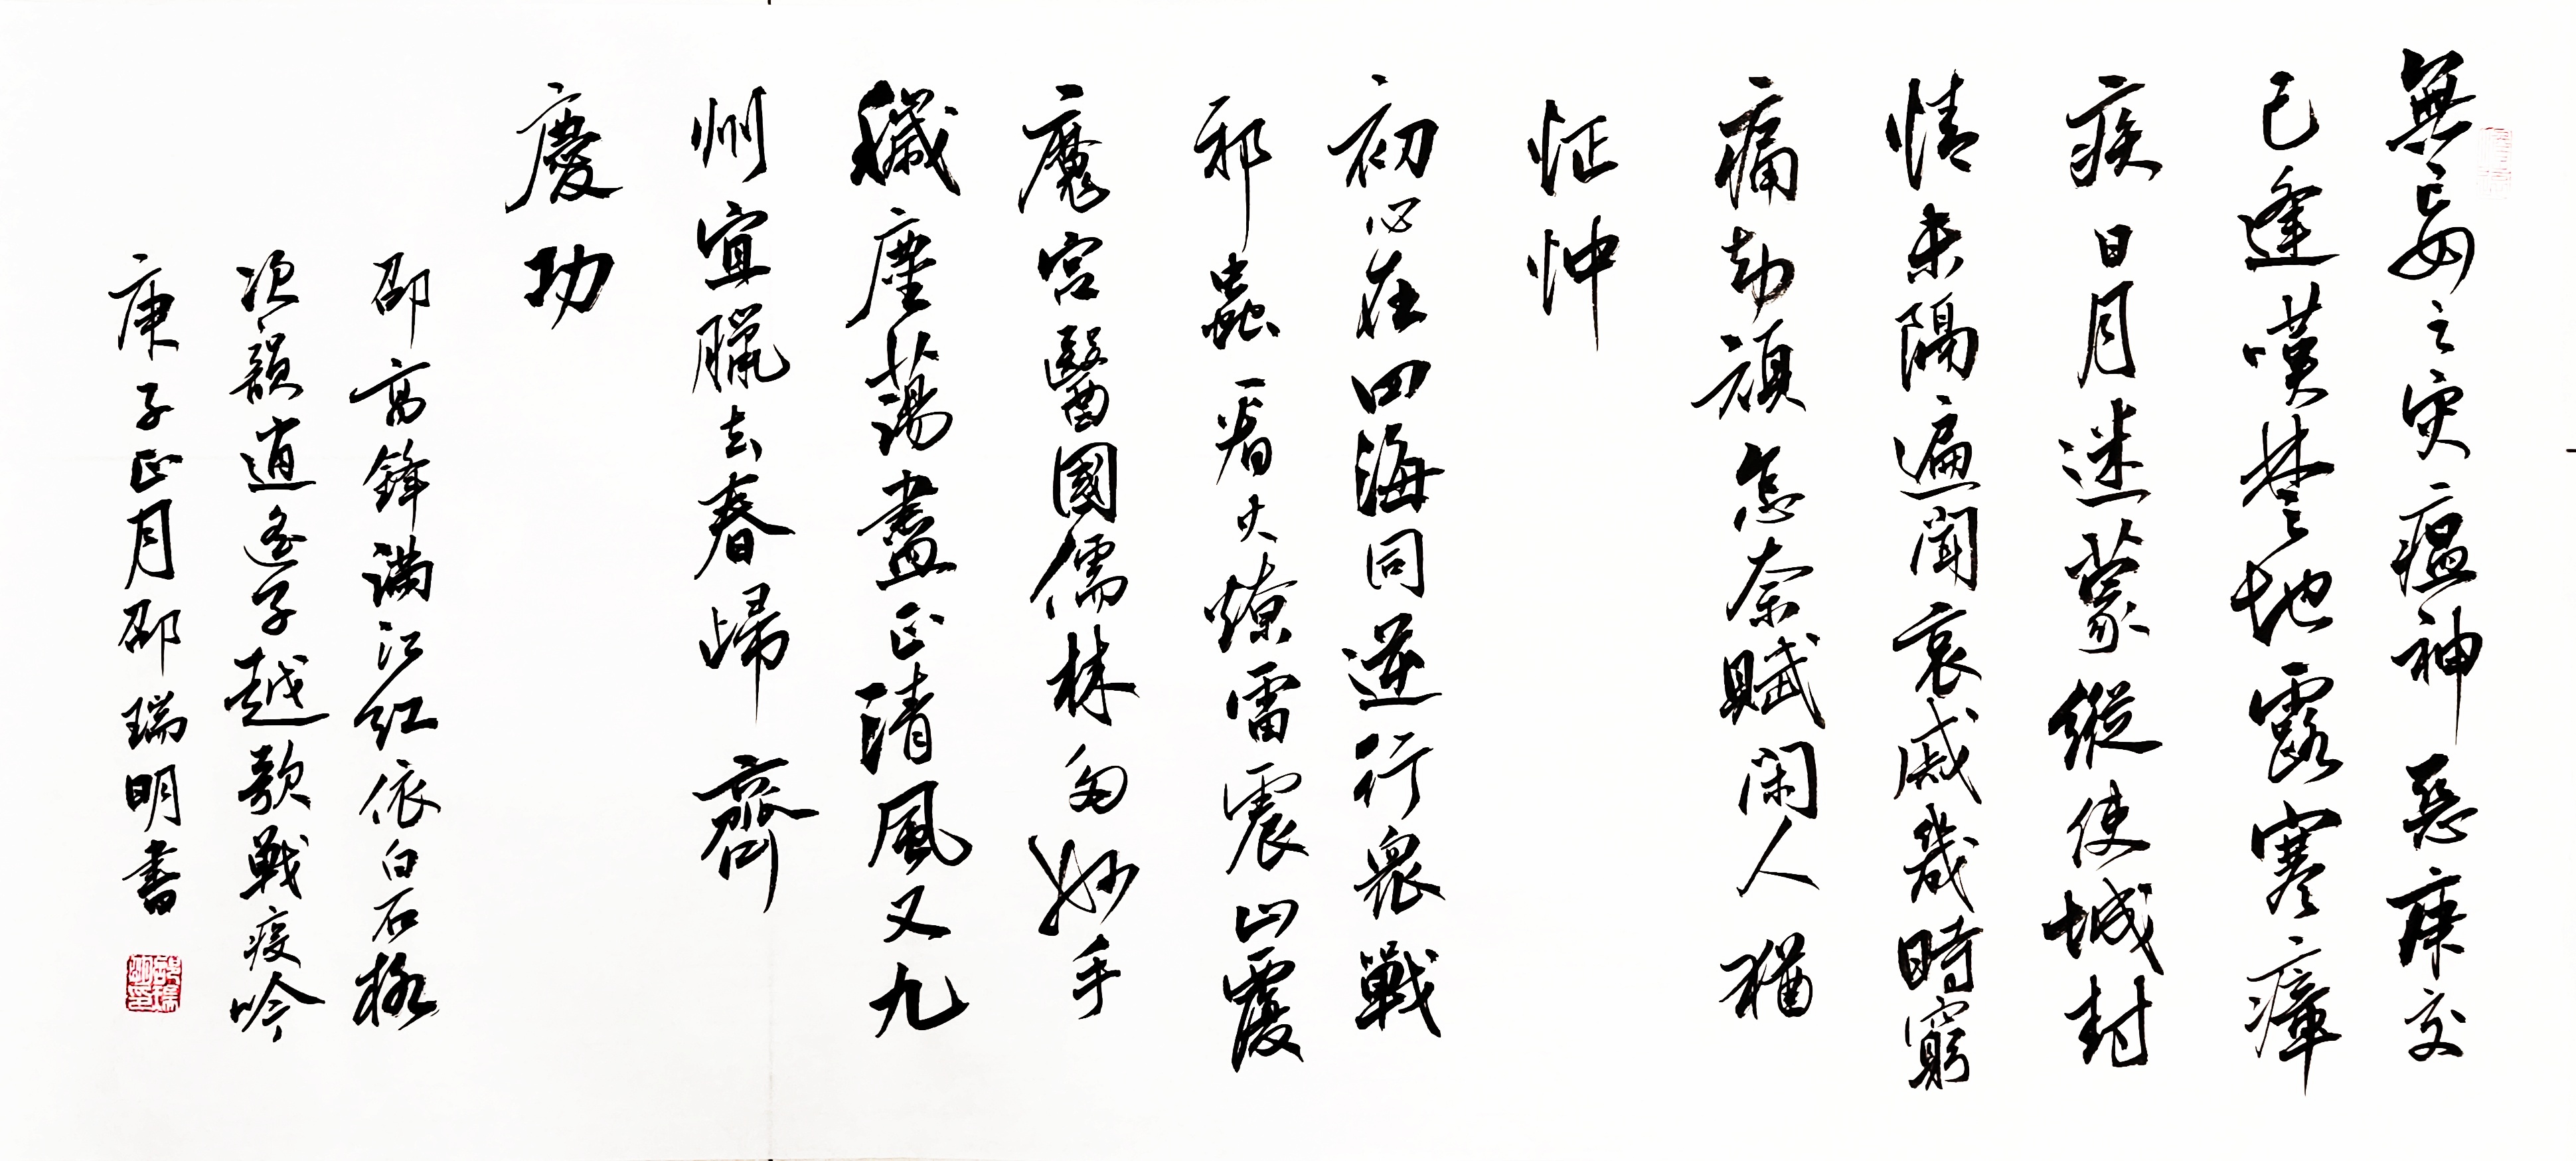 無妄之災瘟神惡庚交
已逢嘆楚地露寒瘴
疾日月迷蒙縱使城封
情未隔遍聞哀戚幾時窮
痛劫頑怎奈賦閑人猶
怔忡
初心在四海同逆行衆戰
邪蟲一看火燎雷震山覆
魔宮醫國儒林多妙手
穢塵蕩盡正清風又九
州宜臘去春歸齊
慶功
邵高鋒滿江紅依白石格
次韻逍遙子越歌戰疫吟
庚子正月邵瑞明書